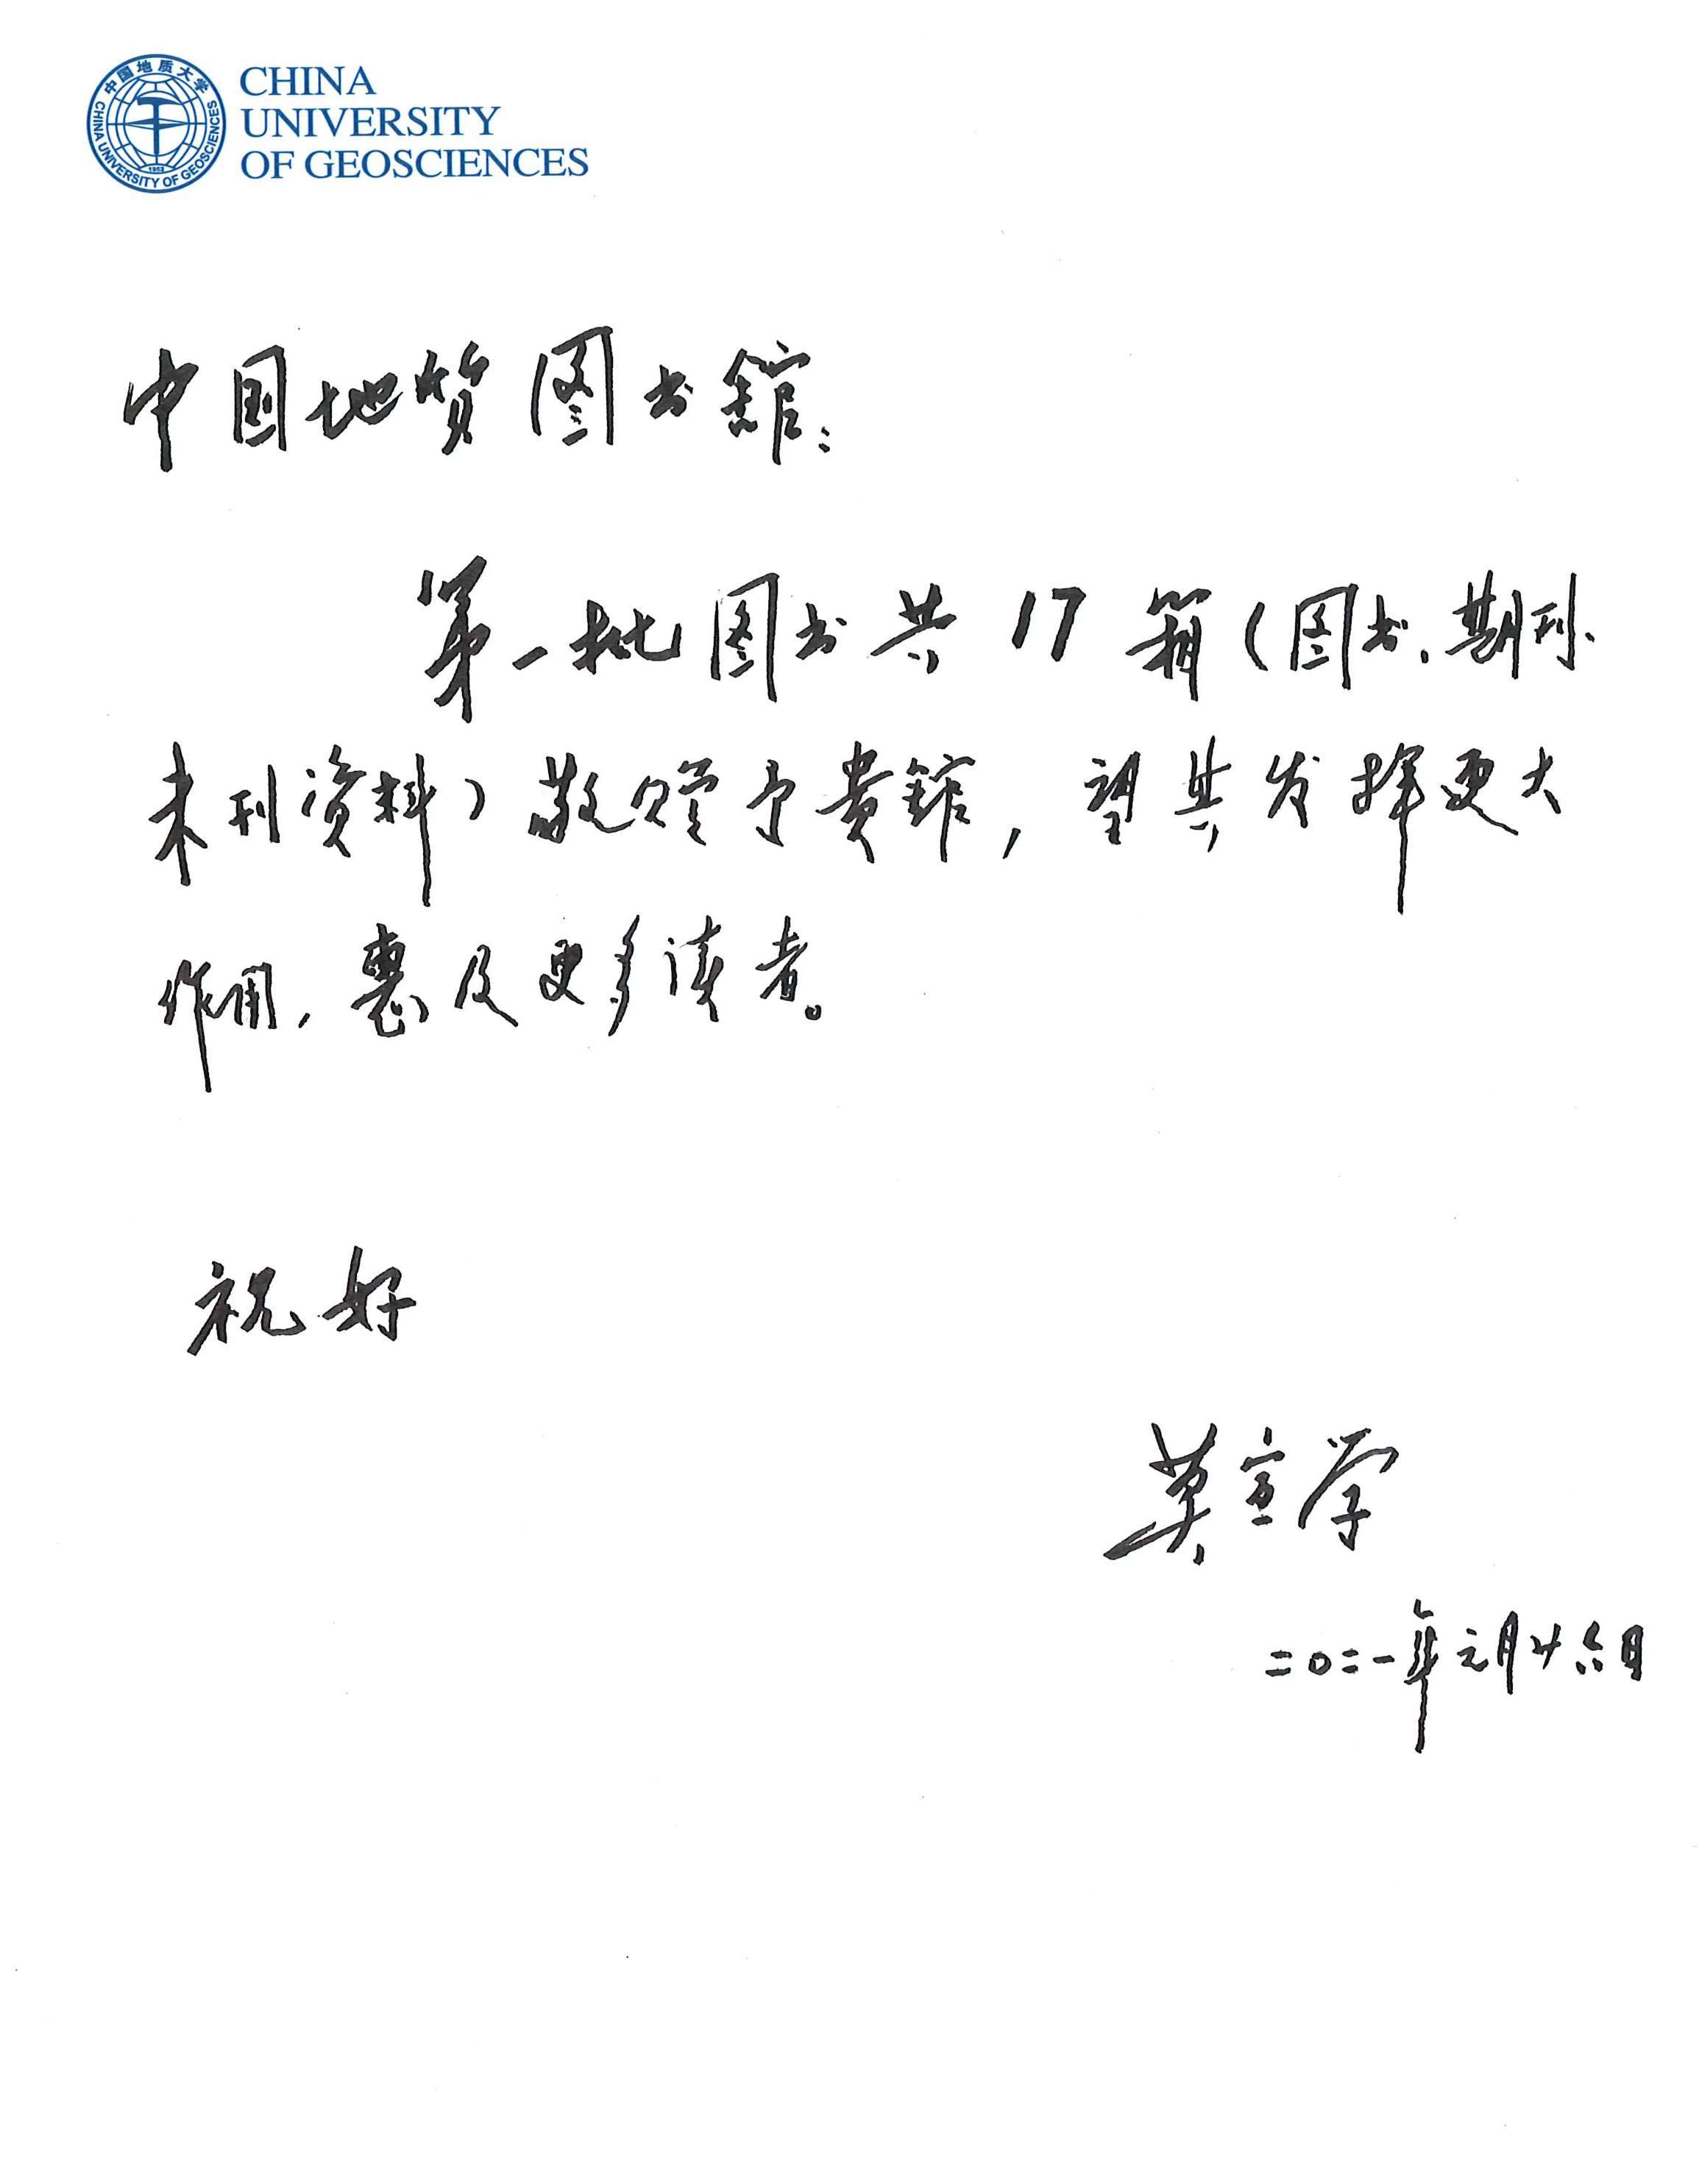 中国地质大学
CHINA UNIVERSITY OF GEOSCIENCES
1952
CHINA
UNIVERSITY
OF GEOSCIENCES
中国地质图书馆：
第一批图书共17箱（图书、期刊、
未刊资料）敬赠予贵馆，望其发挥更大
作用，惠及更多读者。
祝好
莫宣学
二〇二一年元月廿六日